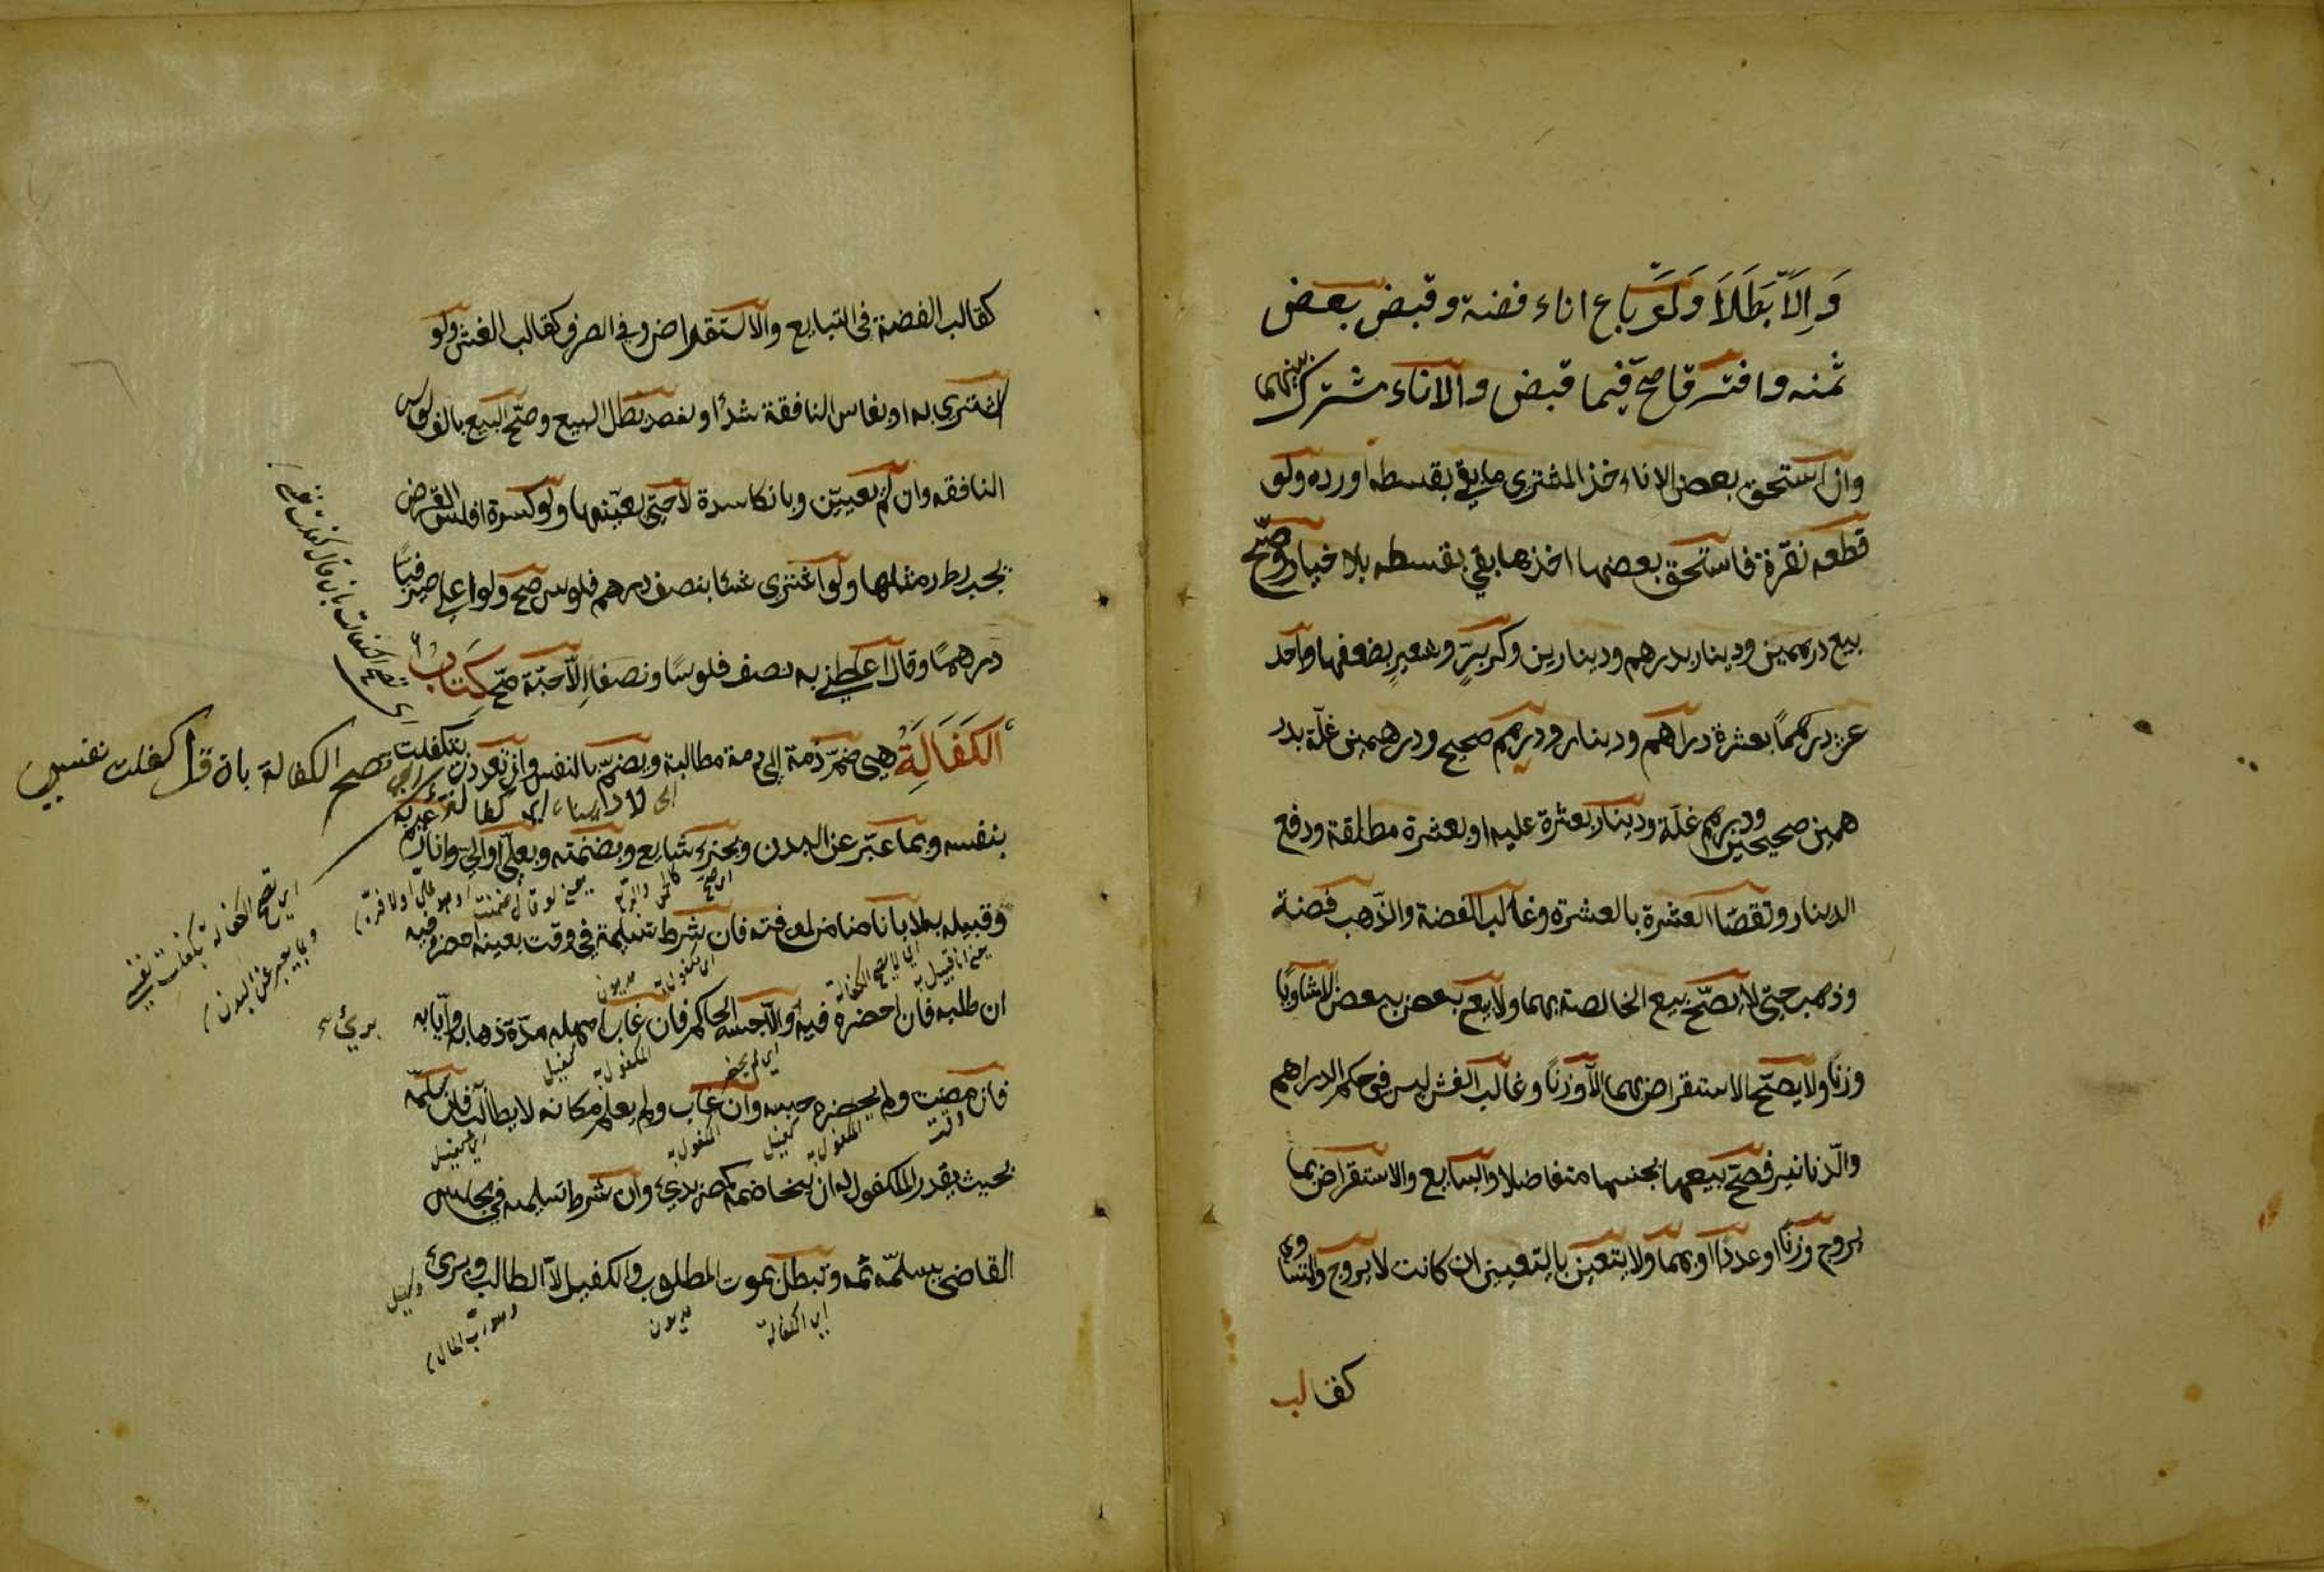 وَاِلَّا بَطَلَا وَلَوْ باع اناء فضة وقبض بعض
ثمنه وافترقا صحّ فيما قبض والاناء مشترك بينهما
وان استحق بعض الاناء اخذ المشترى ما بقي بقسطه او رده ولو
قطعه نقرة فاستحق بعضها اخذ ما بقي بقسطه بلا خيار وصحّ
بيع درهمين ودينار بدرهم ودينارين وكر برّ وشعير بضعفها واحد
عشر درهمًا بعشرة دراهم ودينار ودرهم صحيح ودرهمين غلّة بدر
همين صحيحين ودرهم غلّة ودينار بعشرة عليه او بعشرة مطلقة ودفع
الدينار وتقصّا العشرة بالعشرة وغالب الفضة والذّهب فضة
وذهب حتى لا يصحّ بيع الخالصة بهما ولا بيع بعض ببعض الا متساويًا
وزنًا ولا يصحّ الاستقراض بهما الّا وزنًا وغالب الغش ليس في حكم الدراهم
والدّنانير فصحّ بيعها بجنسها متفاضلا والتبايع والاستقراض بما
يروج وزنًا او عددًا او بهما ولا يتعين بالتعيين ان كانت لا يروج والمتساوى
كغالب
كغالب الفضة في التبايع والاستقراض وفي الصرف كغالب الغش ولو
اشترى به او بفلس النافقة شيئًا وكسد بطل البيع وصحّ البيع بالفلوس
النافقه وان لم يعيّن وبالكاسدة لا حتى يعيّنها ولو كسدة افلس القرض
يجب رد مثلها ولو اشترى شيئا بنصف درهم فلوس صح ولو اعطى صيرفيًا
درهمًا وقال اعطني به نصف فلوسًا ونصفا اِلّا حبّة صحّ كتاب
الكَفَالَةُ هي ضمّ ذمة الى ذمة مطالبة وتصحّ بالنفس وان تعددت بتكفلت
بنفسه وبما عبّر عن البدن وبجزء شايع وبضمنته وبعليّ او اليّ وانا زعيم
وقبيل به لا بانا ضامن لمعرفته فان شرط تسليمه في وقت بعينه احضره فيه
ان طلبه فان احضره فيه والّا حبسه الحاكم فان غاب امهله مدّة ذهابه وايابه
فان مضت ولم يحضره حبسه وان غاب ولم يعلم مكانه لا يطالب فان سلّمه
بحيث يقدر المكفول له ان يخاصمه كمصر برئ وان شرط تسليمه في مجلس
القاضي يسلّمه ثمه وتبطل بموت المطلوب والكفيل لا الطالب وبرئ
تصح الكفالة بان قال كفلت نفسي
اي تصح الكفالة بكفلت بنفسي
وبما يعبر عن البدن
اي لا يصح الكفالة
مديون
المكفول به
كفيل
اي لم يحضر
المكفول به
كفيل
المكفول به
اي الكفالة
مديون
وهو رب المال